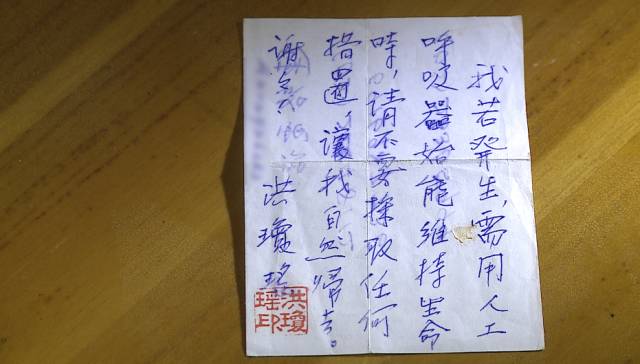 我若発生,需用人工
呼吸器始能維持生命
時,請不要採取任何
措置,讓我自然歸去。
謝
洪瓊瑤
洪瓊
瑤印